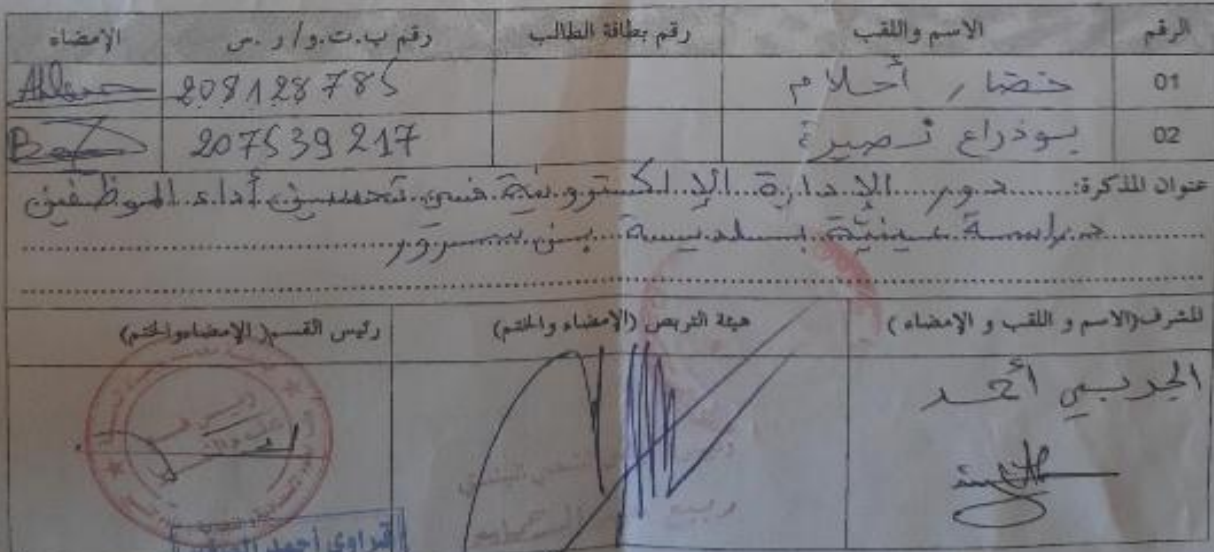 الرقم الاسم واللقب رقم بطاقة الطالب رقم ب.ت.و/ ر .س الإمضاء
01 خضار أحلام 208128785 Ahlem
02 بوذراع نصيرة 207539217
عنوان المذكرة: دور الإدارة الإلكترونية في تحسين أداء الموظفين
دراسة عينية بلدية بن سرور
المشرف(الاسم و اللقب و الإمضاء ) هيئة التربص (الامضاء والختم) رئيس القسم( الإمضاءوالختم)
أحمد
رئيس قسم